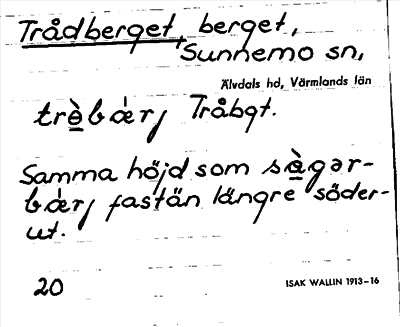 Trådberget, berget,
Sunnemo sn,
Älvdals hd, Värmlands län
trè̱bœ́rj Tråbgt.
Samma höjd som sà̱gər-
bœ́rj fastän längre söder-
ut.
20
ISAK WALLIN 1913-16